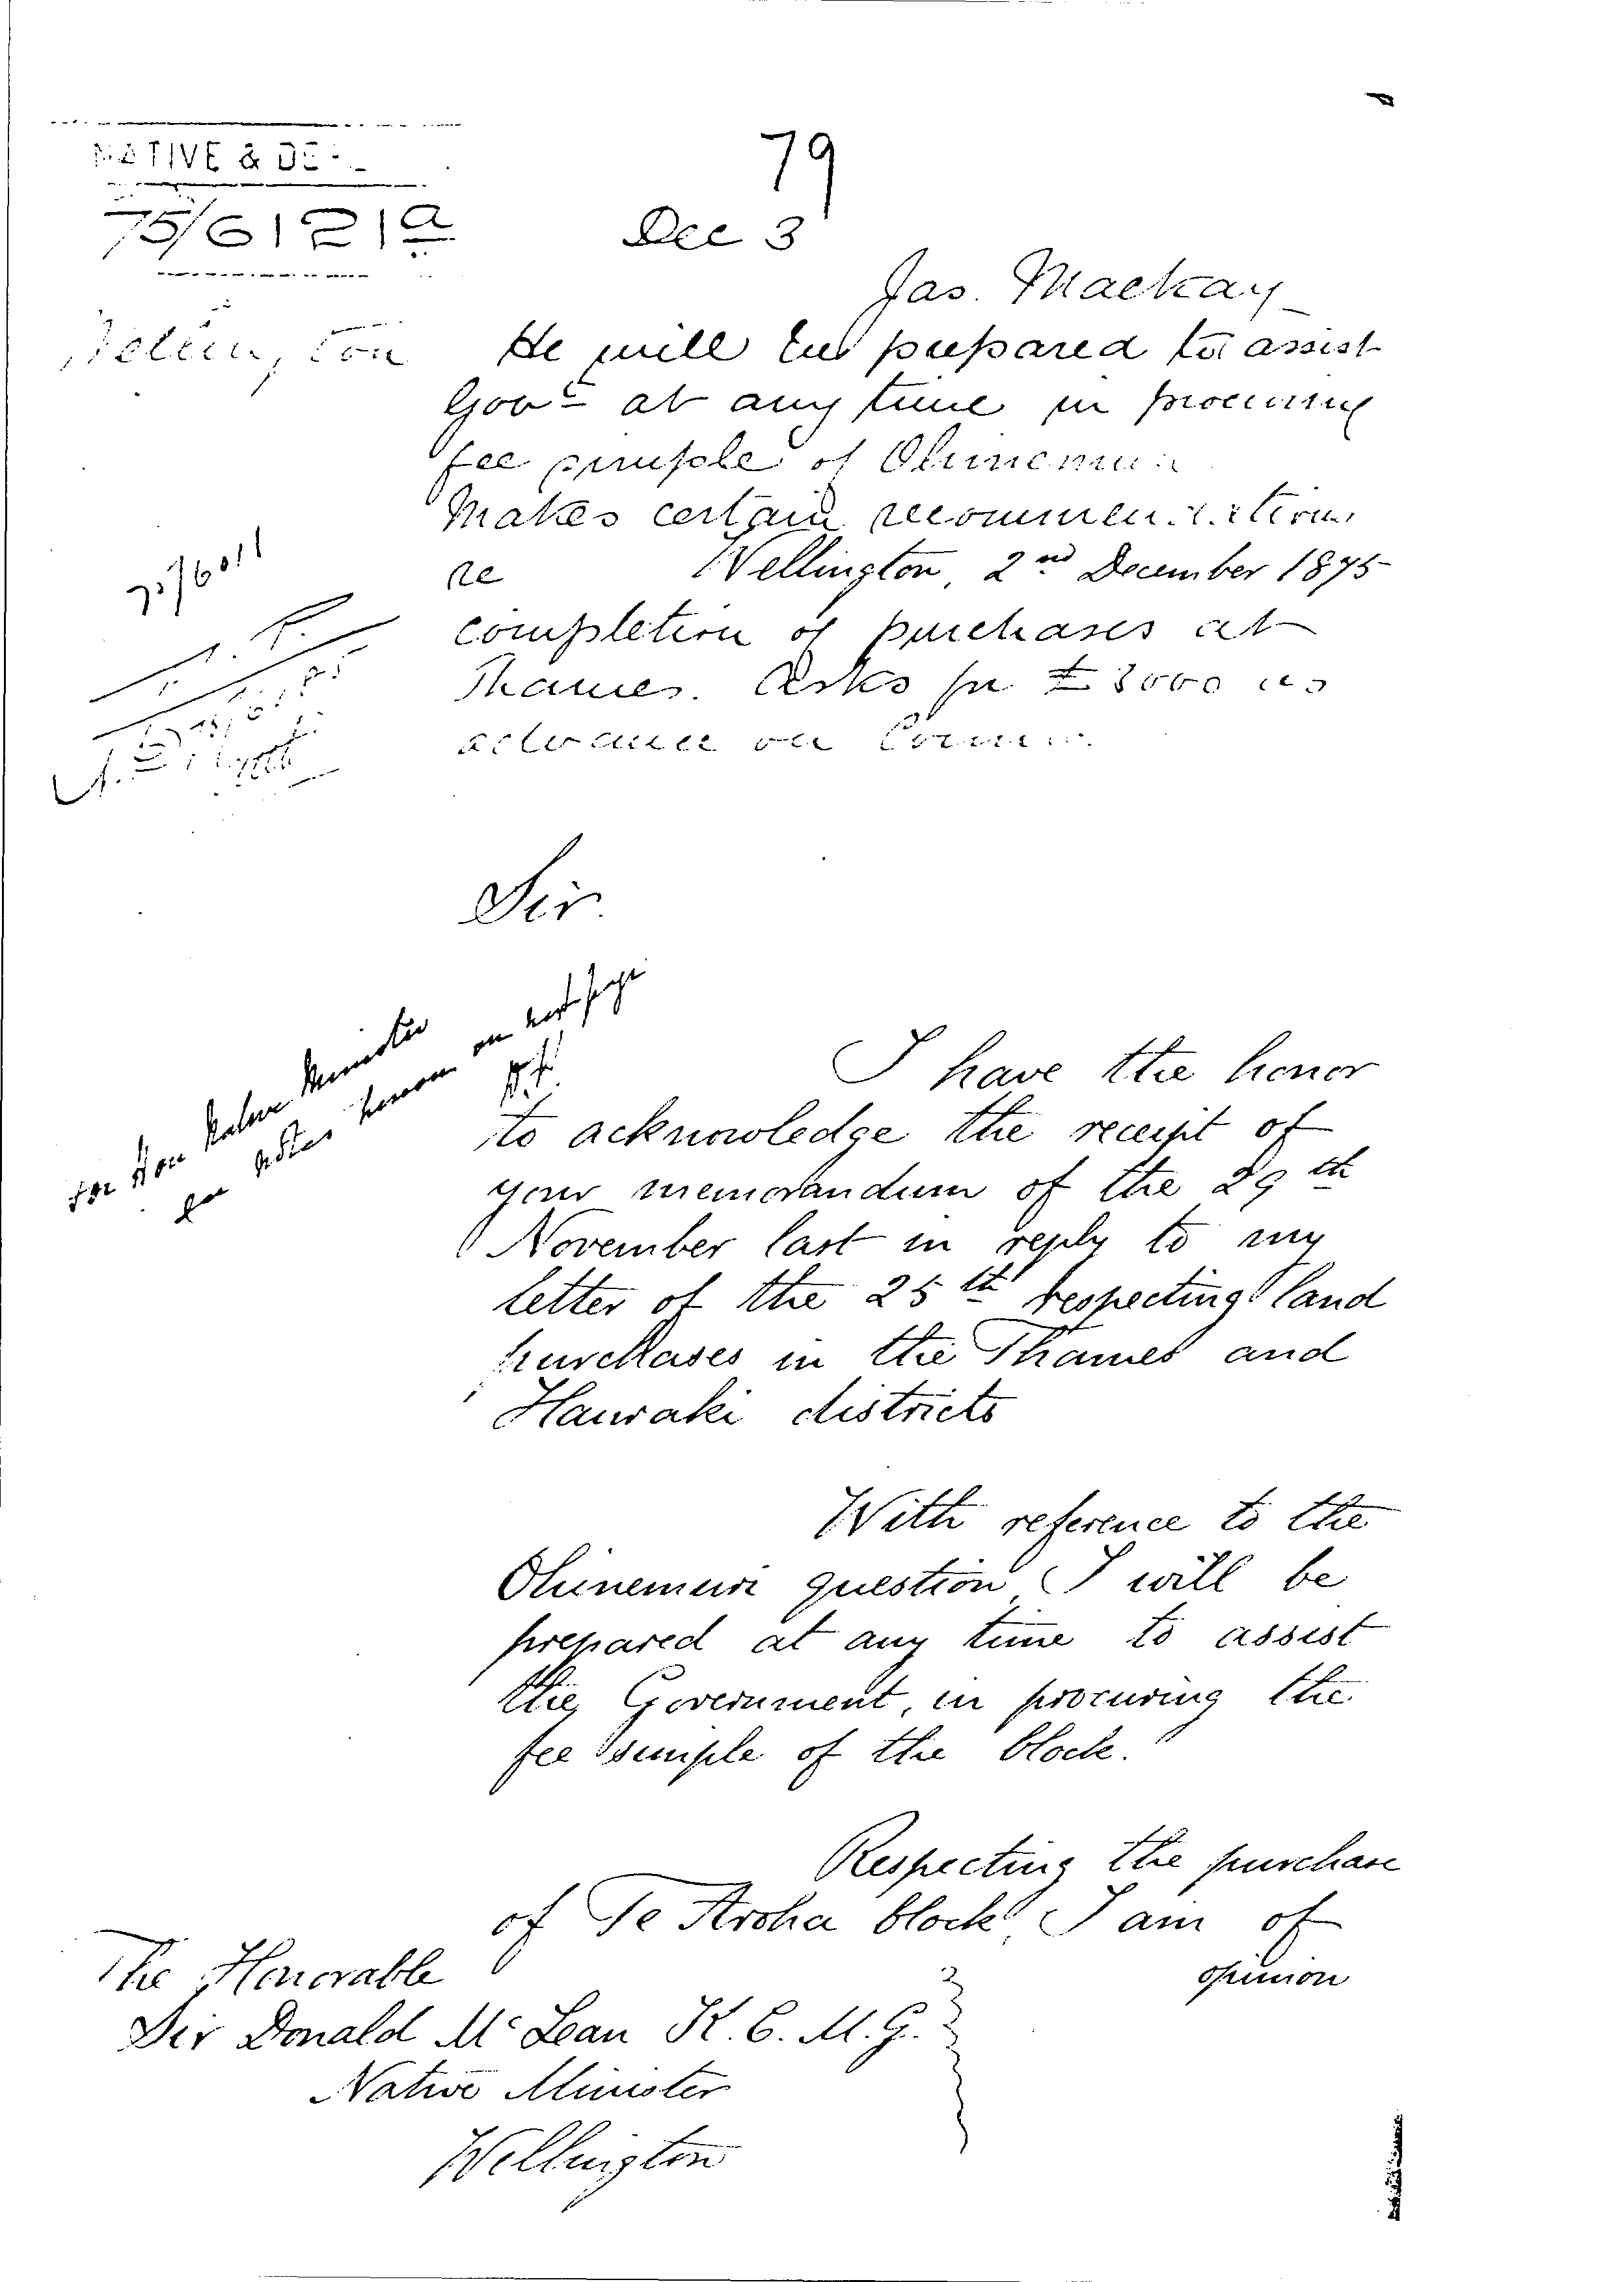 79
NATIVE & DE
75/6121a
Dec 3
Jas. Mackay
He will be prepared to assist
Govt at any time in procuring
fee simple of Ohinemuri
Makes certain recommendations
re
Wellington, 2nd December 1875
completion of purchases at
Thames. Asks for £3000 as
advance on Comn.
75/6011
Sir
For Hon Native Minister
on next page
I have the honor
to acknowledge the receipt of
your memorandum of the 29th
November last in reply to my
letter of the 25th respecting land
purchases in the Thames and
Hauraki districts
With reference to the
Ohinemuri question, I will be
prepared at any time to assist
the Government, in procuring the
fee simple of the block.
Respecting the purchase
of Te Aroha block, I am of
opinion
The Honorable
Sir Donald McLean K.C.M.G.
Native Minister
Wellington